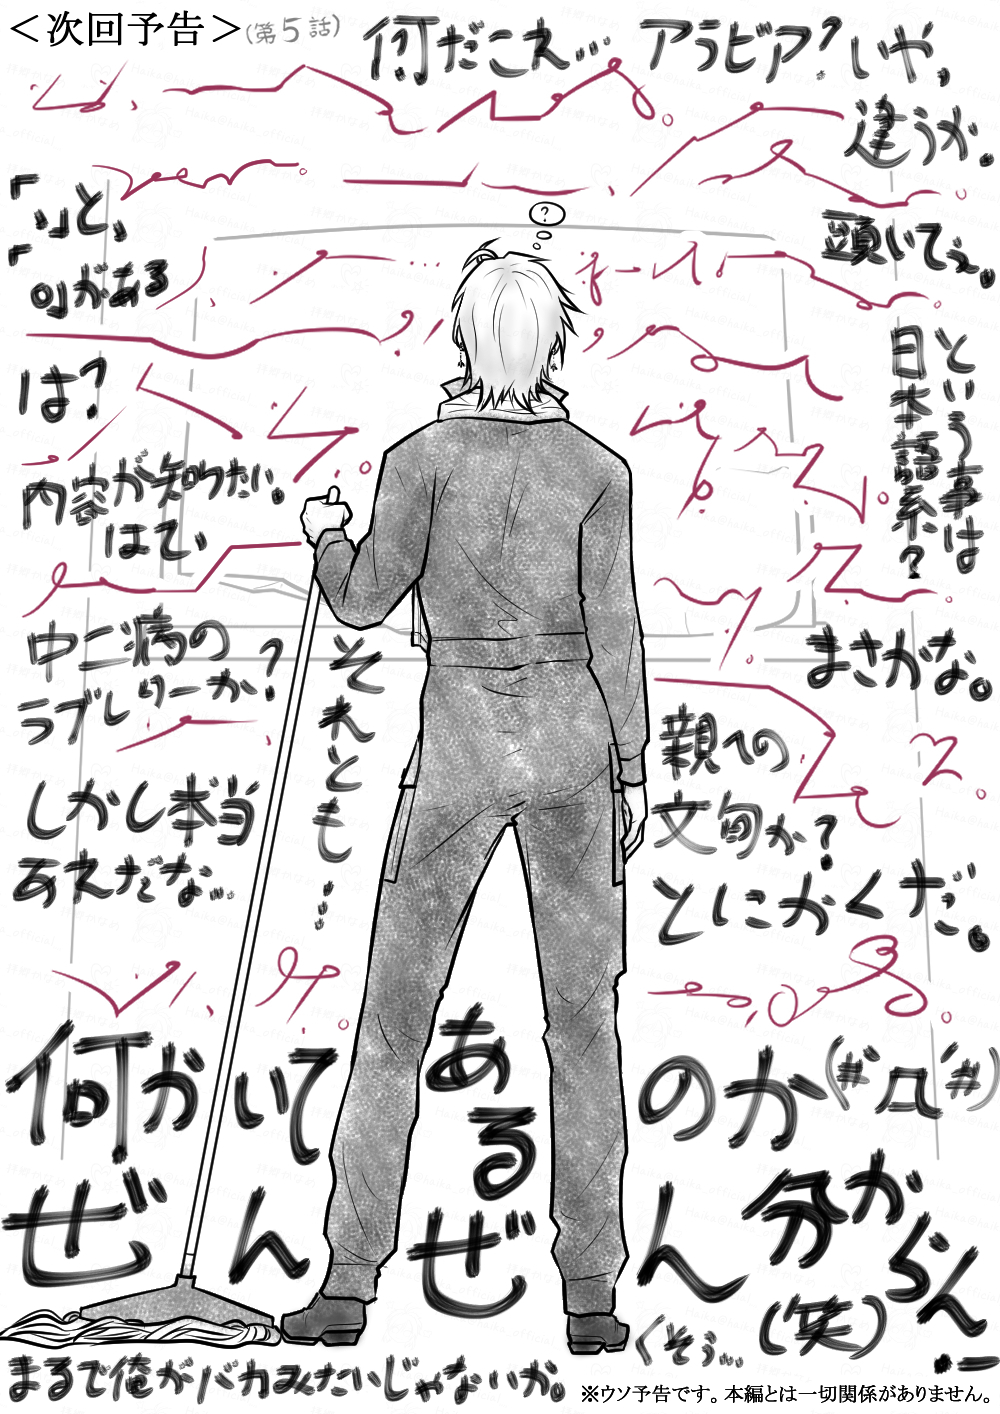 ＜次回予告＞(第5話)
何だこえ… アラビア？いや、
違うか。
頭いてぇ。
という事は
日本語系？
「、」と、
「。」がある
は？
内容が知りたい。
はて、
中二病の
ラブレターか？
それとも…
まさかな。
親への
文句か？
しかし本当
あえだな…
とにかくだ。
何かいてあるのか(#ﾛ#)
ぜんぜん分からん
(笑)
くそぅ…
まるで俺がバカみたいじゃないか。
※ウソ予告です。本編とは一切関係がありません。